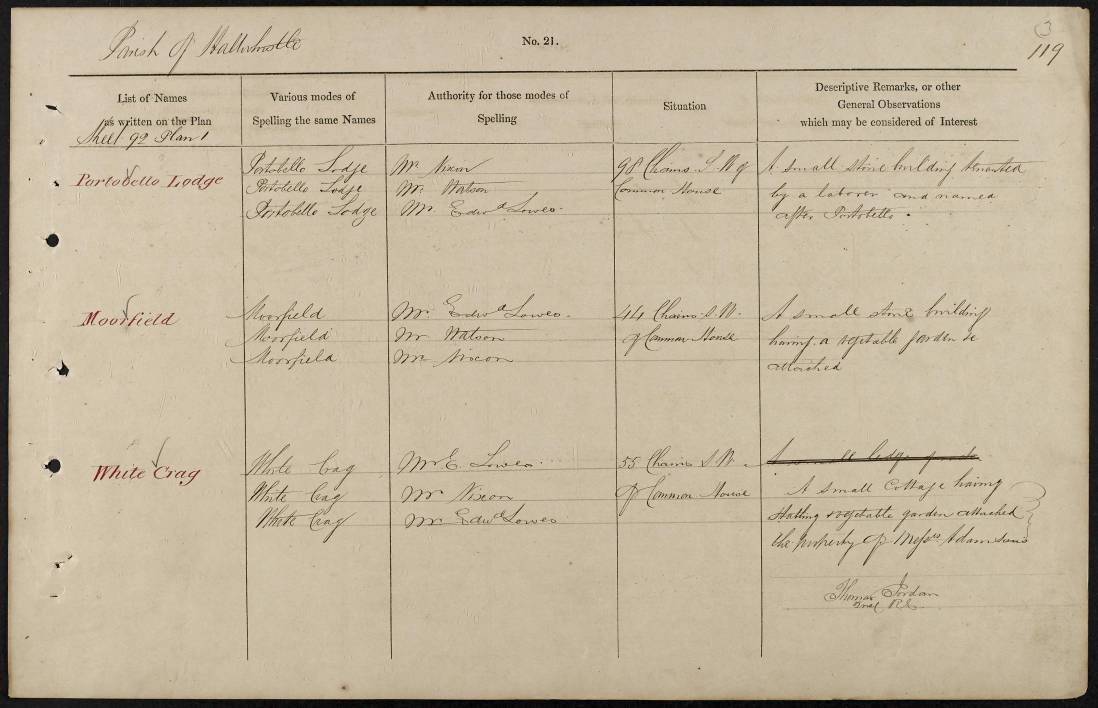 Parish of Haltwhistle
No. 21.
3
119
List of Names
as written on the Plan
Sheet 92 Plan 1
Various modes of
Spelling the same Names
Authority for those modes of
Spelling
Situation
Descriptive Remarks, or other
General Observations
which may be considered of Interest
Portobello Lodge
Portobello Lodge
Portobello Lodge
Portobello Lodge
Mr. Nixon
Mr. Watson
Mr. Edwd. Lowes.
98 Chains S.W of
Common House
A small stone building tenanted
by a laborer and named
after Portobello.
Moorfield
Moorfield
Moorfield
Moorfield
Mr. Edwd Lowes.
Mr Watson
Mr Nixon
44 Chains S.W.
of Common House
A small stone building
having a vegetable garden &c
attached
White Crag
White Crag
White Crag
White Crag
Mr E. Lowes.
Mr Nixon
Mr. Edwd Lowes
55 Chains S.W.
of Common House
A small
A small Cottage having
Stabling & vegetable garden attached
the property of Messrs Adamsons
Thomas Jordan
R.E.